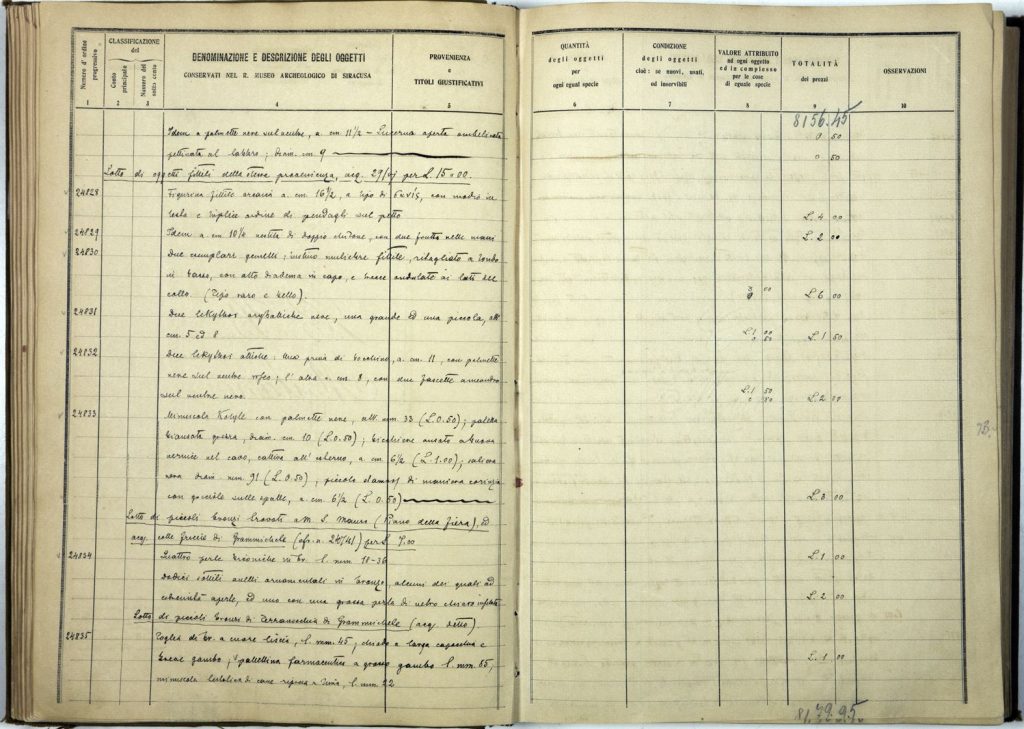 Numero d'ordine progressivo
CLASSIFICAZIONE
del
Conto principale
Numero del sotto conto
DENOMINAZIONE E DESCRIZIONE DEGLI OGGETTI
CONSERVATI NEL R. MUSEO ARCHEOLOGICO DI SIRACUSA
PROVENIENZA
e
TITOLI GIUSTIFICATIVI
1 2 3 4 5
Idem a palmette nere sul ventre, a. cm. 11½ – Lucerna aperta
; diam. cm 9
Lotto di oggetti fittili della stessa provenienza, acq. 29/ per L. 15.00.
24828 Figurina fittile arcaica a. cm. 16½, a tipo di con modio in
testa e triplice ordine di pendagli sul petto
24829 Idem a. cm 10¼ vestita di doppio chitone, con due frutta nelle mani
24830 Due esemplari gemelli; busto muliebre fittile, ritagliato a tondo
in basso, con alto diadema in capo, e trecce ondulate ai lati del
collo. (Tipo raro e bello).
24831 Due lekythos aryballiche nere, una grande ed una piccola, alt.
cm. 5 ed 8
24832 Due lekythos attiche: una priva di bocchino, a. cm. 11, con palmette
nere sul ventre roseo; l'altra a. cm. 8, con due fascette a meandro
sul ventre nero.
24833 Minuscolo Kotyle con palmette nere, alt. mm 33 (L. 0.50); paletta
grezza, diam. cm. 10 (L. 0.50); ansato a buona
vernice nel cavo, cattiva all'esterno, a. cm 6½ (L. 1.00); saliera
nera diam. mm. 91 (L. 0.50); piccolo stamnos di maniera corinzia
con gocciole sulle spalle, a. cm 6½ (L. 0.50)
Lotto di piccoli bronzi trovati a M. S. Mauro (Piano della Fiera), ed
acq. colle freccie di Grammichele (cfr. n. ) per L. 7.00
24834 Quattro perle bronziche in br. l. mm 18-36
dodici sottili anelli ornamentali in bronzo, alcuni dei quali ad
estremità aperte, ed uno con una grossa perla di vetro chiaro infilata
Lotto di piccoli bronzi di Terravecchia di Grammichele (acq. detto).
24835 Foglia di br. a cuore liscia, l. mm. 45; chiodo a larga capocchia e
breve gambo; pallettina farmaceutica a grosso gambo l. mm. 65;
minuscola testolina di cane, l. mm. 22
QUANTITÀ
degli oggetti
per
ogni egual specie
CONDIZIONE
degli oggetti
cioè: se nuovi, usati,
od inservibili
VALORE ATTRIBUITO
ad ogni oggetto
ed in complesso
per le cose
di eguale specie
TOTALITÀ
dei prezzi
OSSERVAZIONI
6 7 8 9 10
8156.45
0 50
0 50
L. 4 00
L. 2 00
3 00 L. 6 00
L. 1 00
0 50 L. 1 50
L. 1 50
L. 2 00
L. 3 00
L. 1 00
L. 2 00
L. 1 00
73.
8179.95